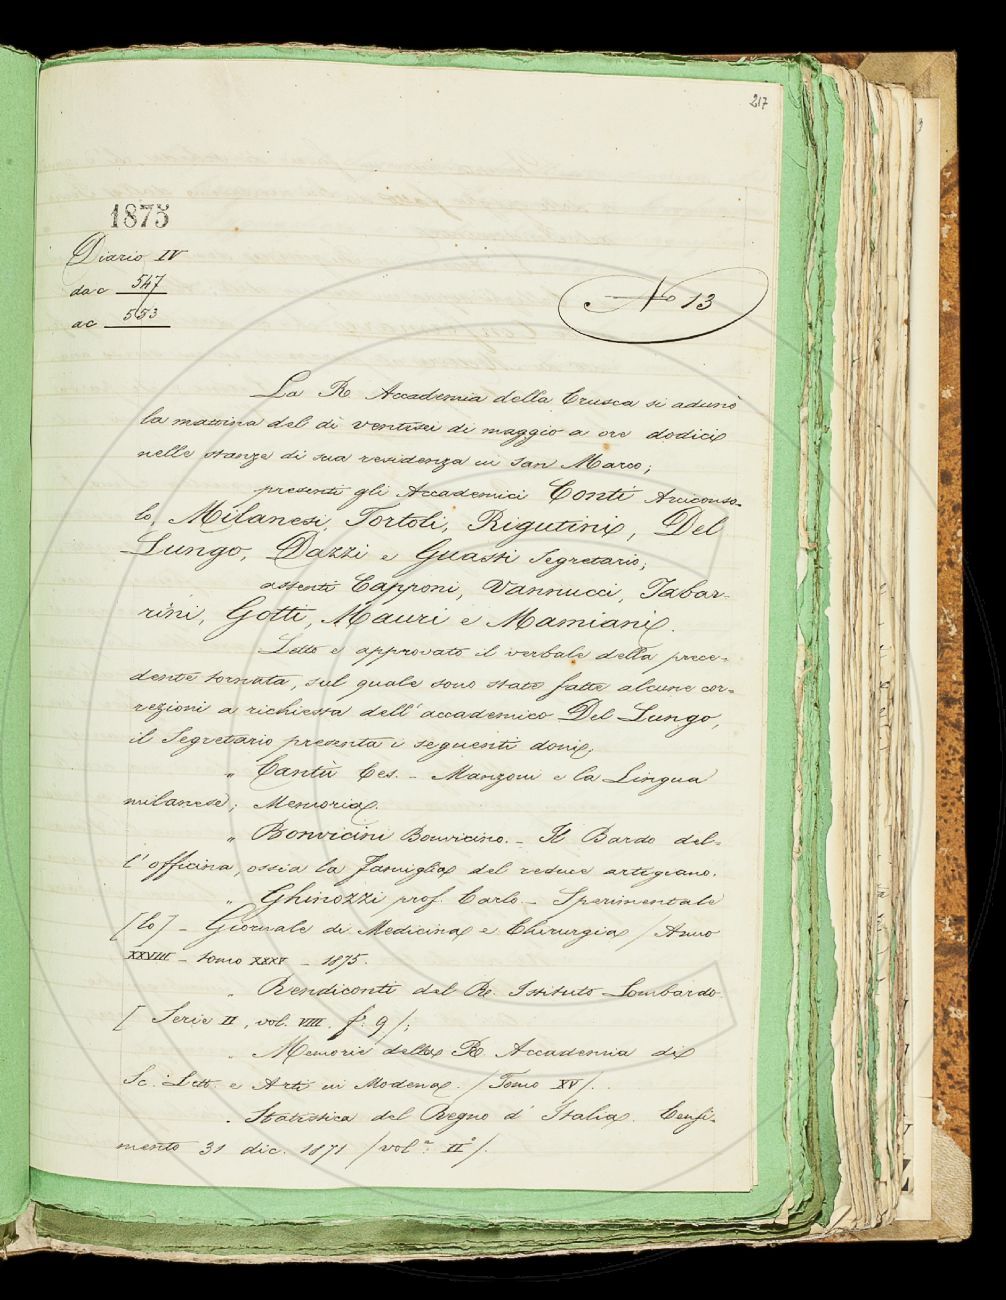 217
1875
Diario IV
da c 547
a c 553
No 13
La R Accademia della Crusca si adunò
la mattina del dì ventisei di maggio a ore dodici
nelle stanze di sua residenza in San Marco;
presenti gli Accademici Conti Arciconso-
lo, Milanesi, Tortoli, Rigutini, Del
Lungo, Dazzi e Guasti Segretario;
assenti Capponi, Vannucci, Tabar-
rini, Gotti, Mauri e Mamiani.
Letto e approvato il verbale della prece-
dente tornata, sul quale sono state fatte alcune cor-
rezioni a richiesta dell'accademico Del Lungo,
il Segretario presenta i seguenti doni;
" Cantù Ces. - Manzoni e la Lingua
milanese; Memoria.
" Bonvicini Bonvicino. - Il Bardo del-
l'officina, ossia la Famiglia del reduce artigiano.
" Ghinozzi prof. Carlo - Sperimentale
[Lo] - Giornale di Medicina e Chirurgia / Anno
XXVIII - tomo XXXV - 1875.
" Rendiconti del R. Istituto Lombardo
[ Serie II, vol. VIII. f. 9 /;
" Memorie della R Accademia di
Sc. Lett. e Arti in Modena. / Tomo XV /.
" Statistica del Regno d'Italia. Censi-
mento 31 dic. 1871 / vol.e II° /.